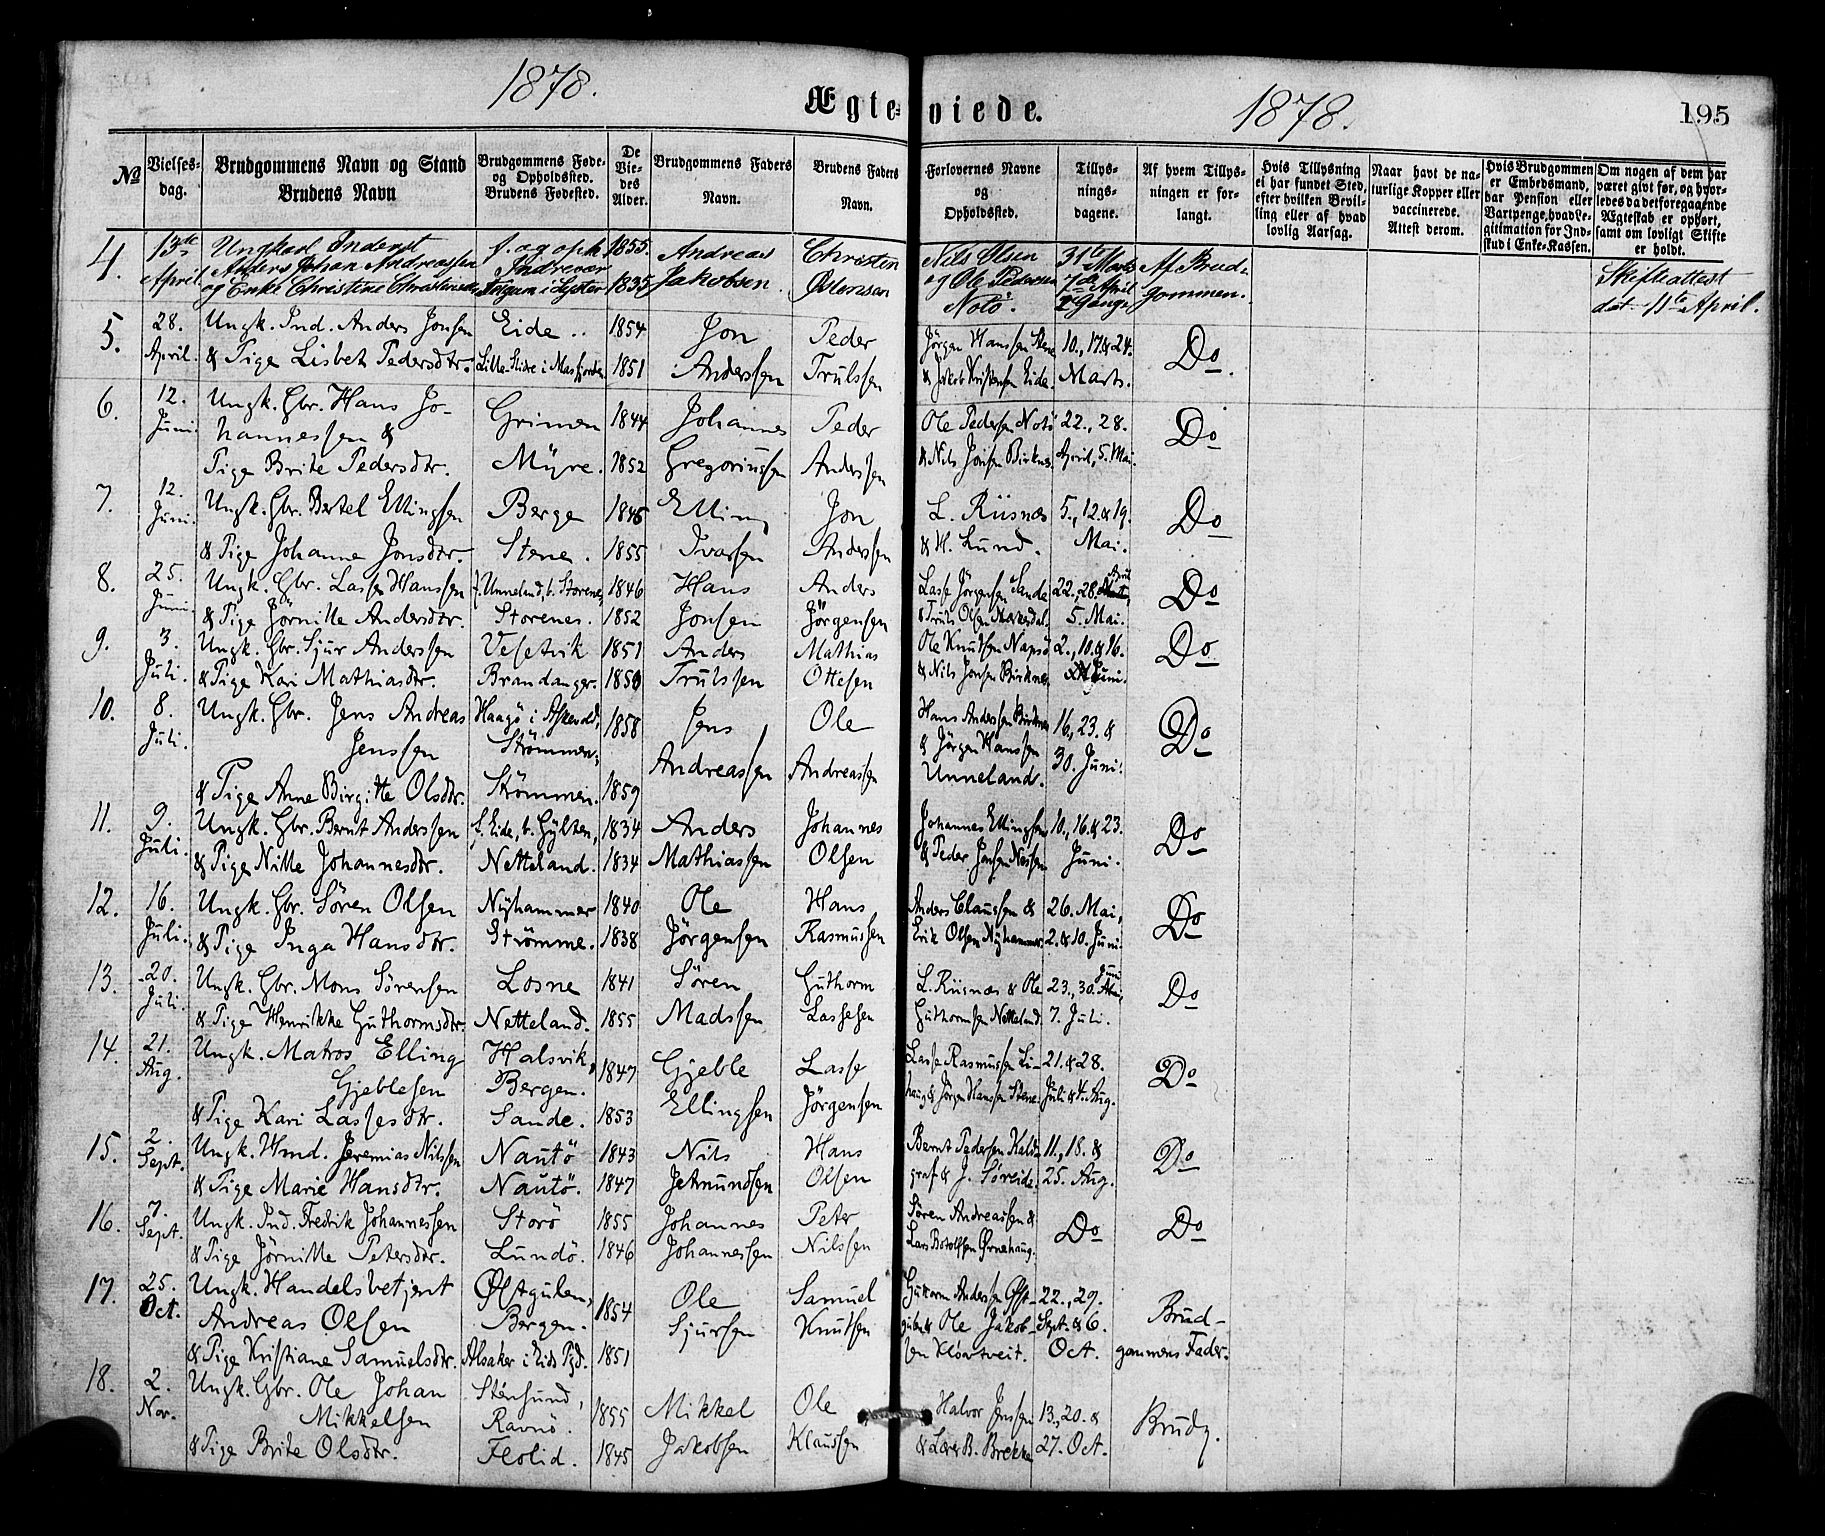 1878.
Ægteviede.
1878.
195
№
Vielses-
dag.
Brudgommens Navn og Stand
Brudens Navn
Brudgommens Føde-
og Opholdssted.
Brudens Fødested.
De
Vie-
des
Alder.
Brudgommens Faders
Navn.
Brudens Faders
Navn.
Forlovernes Navne
og
Opholdssted.
Tillys-
nings-
dagene.
Af hvem Tillys-
ningen er for-
langt.
Hvis Tillysning
ei har fundet Sted,
efter hvilken Bevil-
ling eller af hvad
lovlig Aarsag.
Naar havt de na-
turlige Kopper eller
vaccinerede.
Attest derom.
Hvis Brudgommen
er Embedsmand,
har Pension eller
Vartpenge, hvad Le-
gitimation for Ind-
skud i Enke-Kassen.
Om nogen af dem har
været givt før, og hvor-
ledes da det foregaaende
Ægteskab er ophørt,
samt om lovligt Skifte
er holdt.
4. 13de Ungkarl Inderst f. og oph 1855. Andreas Christen Nils Olsen 31te Marts Af Brud-
April Anders Johan Andreassen Indrevær Jakobsen. Østensen og Ole Pedersen 7de April gommen. Skifteattest
og Enke Christine 1835 Notö. 2 Gange dat. 11te April.
5. 28. Ungk. Ind. Anders Jonsen Eide 1854 Jon Peder Jörgen Hanssen Stene 10., 17. & 24. Do
April. & Pige Lisbet Pedersdtr. i Masfjorden 1851 Anderssen Trulssen & Jakob Kristensen Eide. Marts.
6. 12. Ungk. Gbr. Hans Jo- Grimen 1844 Johannes Peder Ole Pedersen Notö 22., 28. Do
Juni hannessen &
Pige Brite Pedersdtr. Myre. 1852 Gregoriussen Anderssen & Nils Jonsen Birknes. April, 5. Mai.
7. 12. Ungk. Gbr. Bertel Ellingsen Berge 1845 Elling Jon L. Riisnæs 5., 12. & 19. Do
Juni. & Pige Johanne Jonsdtr. Stene. 1855 Ivarsen Anderssen & H. Lund. Mai.
8. 25. Ungk. Gbr. Lasse Hanssen f. Unneland, b. Storenes, 1846 Hans Anders Lasse Jörgensen Sande 22., 28. April, Do
Juni & Pige Jörnitte Andersdtr. Storenes. 1852 Jonsen Jörgensen & Truls Olsen 5. Mai.
9. 3. Ungk. Gbr. Sjur Anderssen Vesetvik 1851 Anders Mathias Ole Knutsen Napsö 2., 10. & 16. Do
Juli. & Pige Kari Mathiasdtr. Brandanger. 1850 Trulssen Ottesen & Nils Jonsen Birknes. Juni.
10. 8. Ungk. Gbr. Jens Andreas Haagö i Askevold, 1858 Jens Ole Hans Anderssen Birknes 16., 23. & Do
Juli. Jenssen Strömmen, & Jörgen Hanssen 30. Juni.
Andreassen Andreassen Unneland.
& Pige Anne Birgitte Olsdtr. Strömmen. 1859
11. 9. Ungk. Gbr. Bernt Anderssen f. Eide, b. Gylten, 1834 Anders Johannes Johannes Ellingsen 10., 16. & 23. Do
Juli. & Pige Nille Johannesdtr. Netteland. 1834 Mathiassen Olsen & Peder Jonsen Juni.
12. 16. Ungk. Gbr. Sören Olsen Nyhammer 1840 Ole Hans Anders Claussen & 26. Mai, Do
Juli. & Pige Inga Hansdtr. Strömme. 1838 Jörgensen Rasmussen Erik Olsen Nyhammer. 2. & 10. Juni.
13. 20. Ungk. Gbr. Mons Sörensen Losne 1841 Sören Guthorm L. Riisnæs & Ole 23., 30. Juni, Do
Juli. & Pige Henrikke Guthormsdtr. Netteland. 1855 Madssen Lassesen Guthormsen Netteland. 7. Juli.
14. 21. Ungk. Matros Elling Halsvik, 1847 Gjeble Lasse Lasse Rasmussen Li- 21. & 28. Do
Aug. Gjeblesen Bergen. Ellingsen Jörgensen haug & Jörgen Hanssen Stene. Juli & 4. Aug.
& Pige Kari Lassesdtr. Sande. 1853
15. 2. Ungk. Hmd. Jeremias Nilssen Nautö 1843 Nils Hans Bernt Pedersen Kald- 11., 18. & Do
Sept. & Pige Marie Hansdtr. Nautö. 1847 Jetmundsen Olsen graf & J. Søreide. 25. Aug.
16. 7. Ungk. Ind. Fredrik Johannessen Storö 1855 Johannes Peter Sören Andreassen & Do Do
Sept. & Pige Jörnitte Petersdtr. Lundö. 1846 Johannessen Nilssen Lars Botolfsen Ørnehaug.
17. 25. Ungk. Handelsbetjent Østgulen, 1854 Ole Samuel Guttorm Anderssen Øst- 22., 29. Brud-
Oct. Andreas Olsen Bergen. Sjursen Knutsen gulen & Ole Jakob- Sept. & 6. gommens Fader.
& Pige Kristiane Samuelsdtr. Alsaker i Eids Pgd. 1851 sen Hovtveit. Oct.
18. 2. Ungk. Gbr. Ole Johan Stensund, 1855 Mikkel Ole Halvor Jenssen 13., 20. & Brudg.
Nov. Mikkelsen Ravnö.
& Pige Brite Olsdtr. Flolid. 1845 Jakobsen Klaussen & Lars B. Brekke 27. Oct.